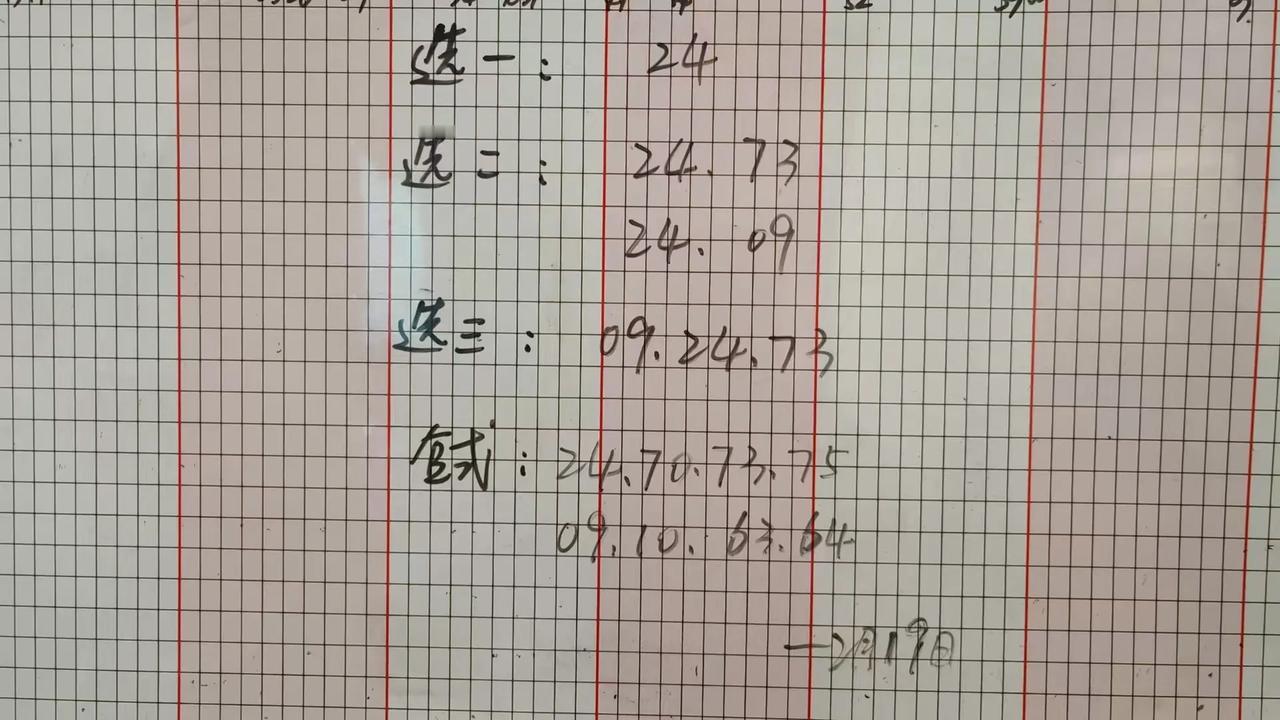 选一: 24
选二: 24. 73
24. 09
选三: 09.24.73
复式: 24.70.73.75
09.10. 63.64
—2月19日